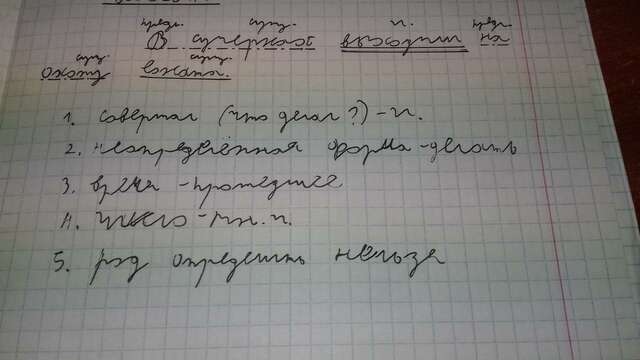 предл. сущ. г. предл.
В сумерках выходил на
сущ. сущ.
охоту
1. совершал (что делал?) - г.
2. неопределённая форма - делать
3. время - прошедшее
4. число - мн. ч.
5. род определить нельзя